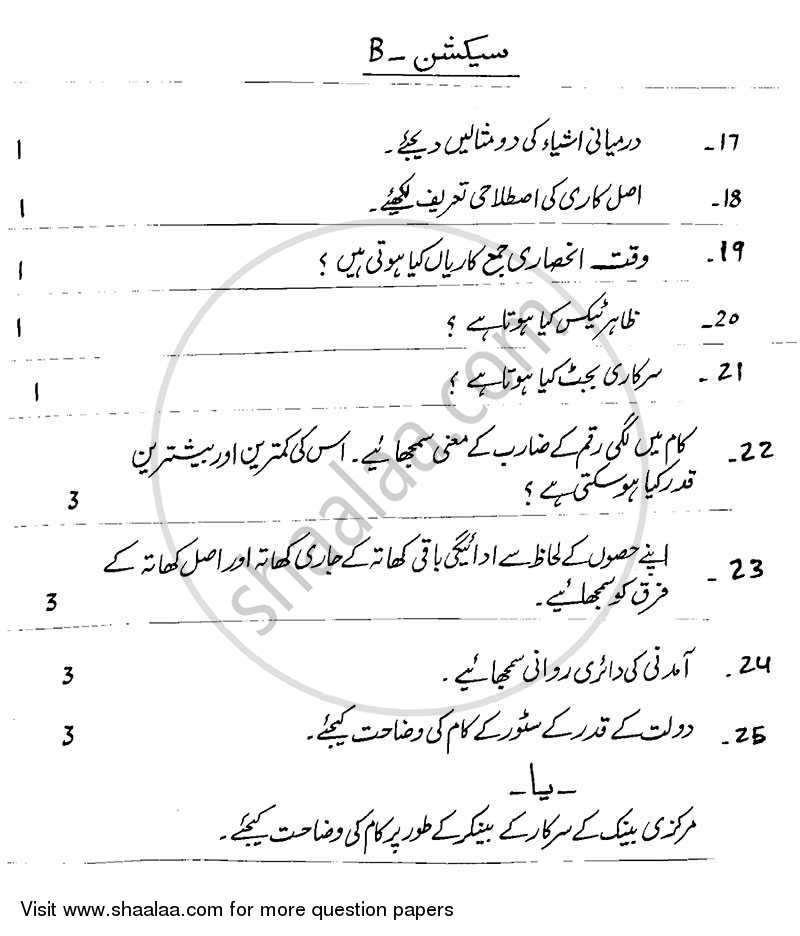 سیکشن - B
17- درمیانی اشیاء کی دو مثالیں دیجئے۔ 1
18- اصل کاری کی اصطلاحی تعریف لکھئے۔ 1
19- وقت انحصاری جمع کاریاں کیا ہوتی ہیں ؟ 1
20- ظاہر ٹیکس کیا ہوتا ہے ؟ 1
21- سرکاری بجٹ کیا ہوتا ہے ؟ 1
22- کام میں لگی رقم کے ضارب کے معنی سمجھائیے۔ اس کی کمترین اور بیشترین
قدر کیا ہوسکتی ہے ؟ 3
23- اپنے حصوں کے لحاظ سے ادائیگی باقی کھاتہ کے جاری کھاتہ اور اصل کھاتہ کے
فرق کو سمجھائیے۔ 3
24- آمدنی کی دائری روانی سمجھائیے۔ 3
25- دولت کے قدر کے سٹور کے کام کی وضاحت کیجئے۔ 3
-یا-
مرکزی بینک کے سرکار کے بینکر کے طور پر کام کی وضاحت کیجئے۔
shaalaa.com
Visit www.shaalaa.com for more question papers